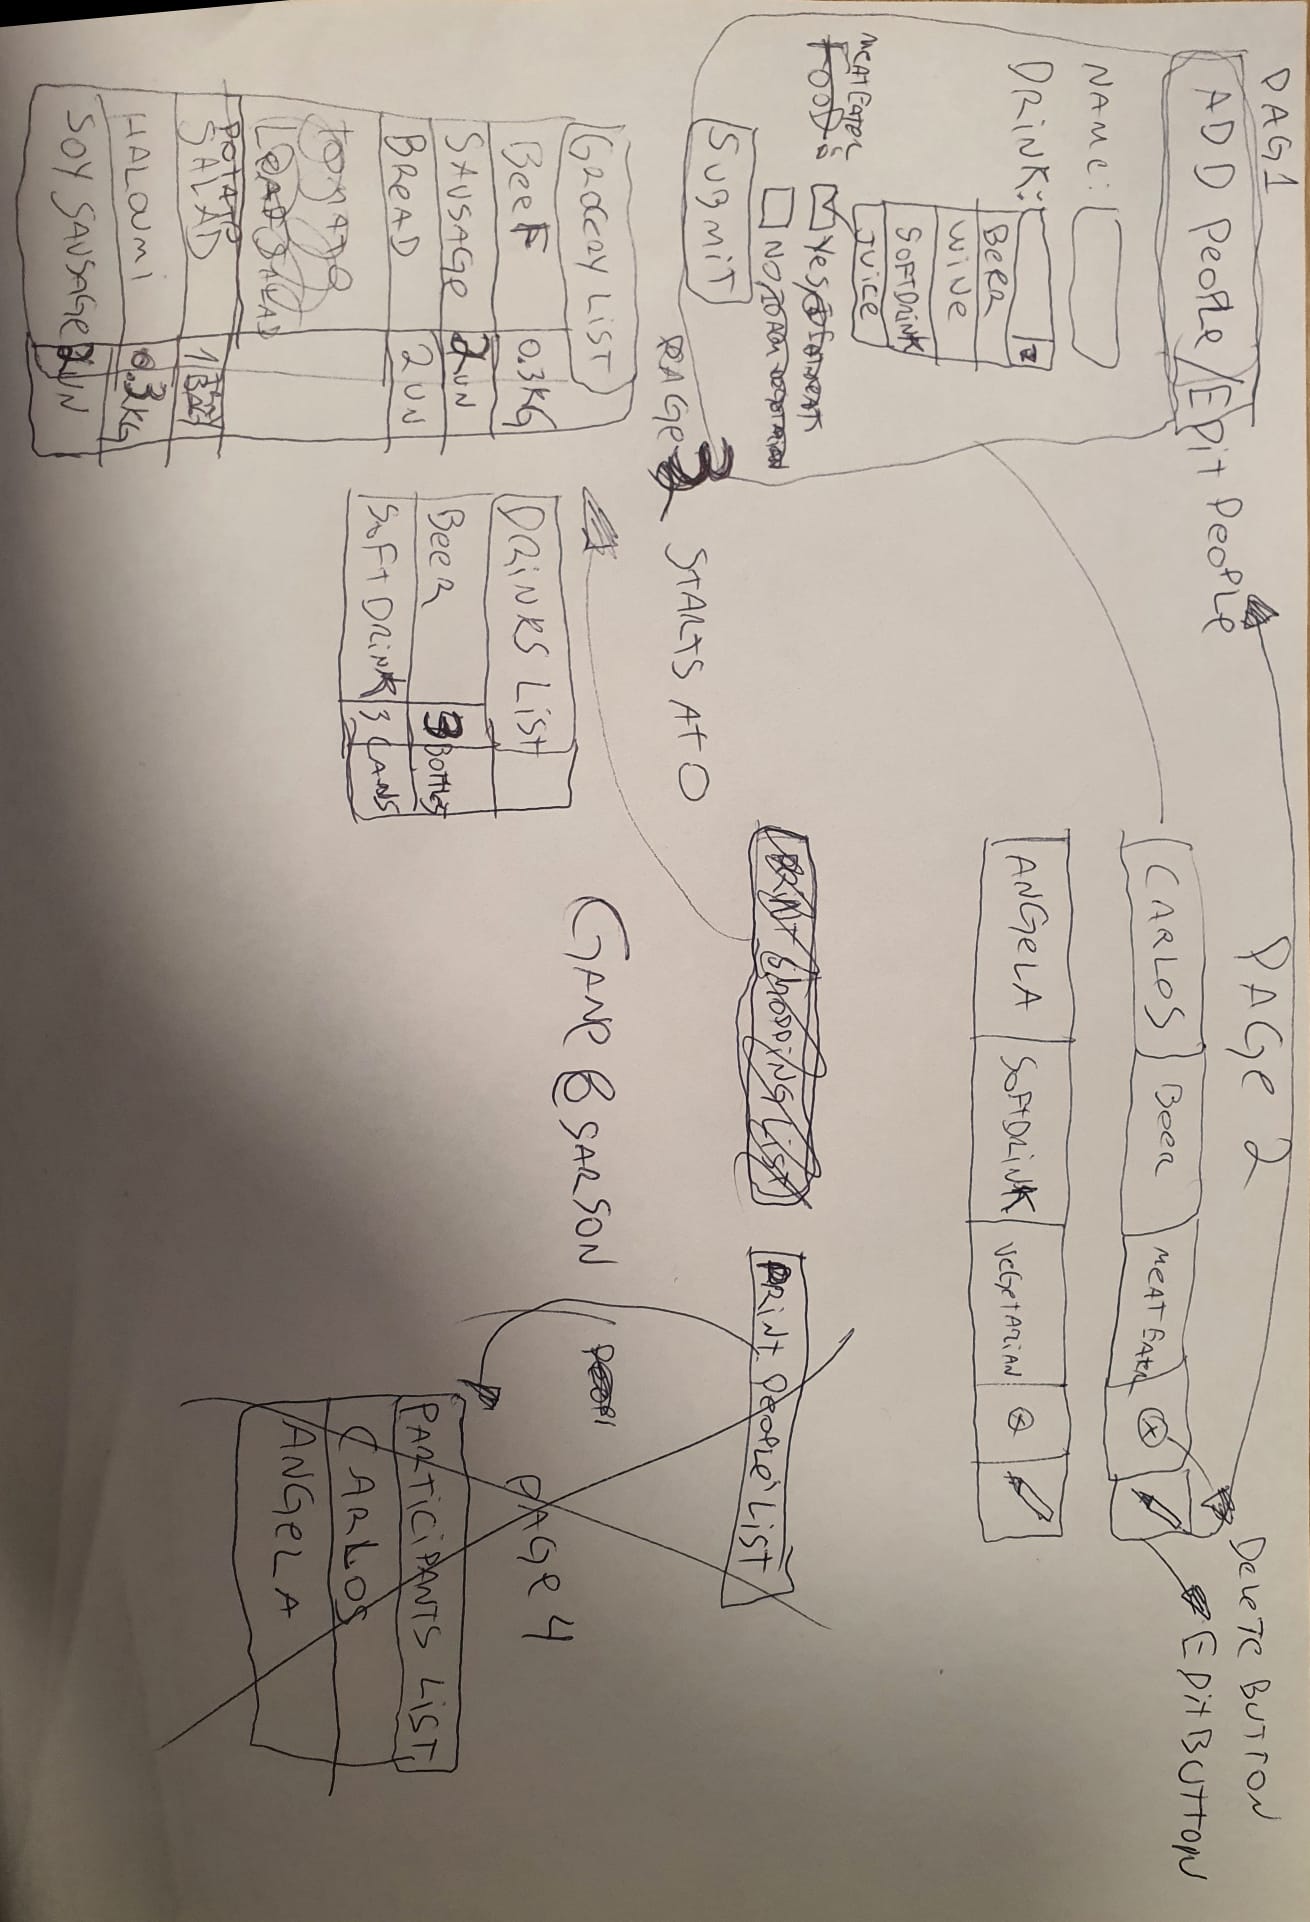 PAG1
ADD PeoPLe/EDit PeoPLe
NAMe:
DRiNK:
BeeR
WiNe
SOFTDRiNK
JUiCe
MeAT EATeR
FOOD:
Yes/
NO/
SUBMiT
PAGe 2
DeLeTe BUTTON
EDitBUTTON
CARLOS
BeeR
MeAT EATeR
ANGeLA
SOFTDRiNK
VeGeTARiAN
PRiNT SHOPPiNG LiST
PRiNT PeOPLe LiST
PAGe 3
STARTS AT 0
GROCeRY LiST
BeeF 0.3KG
SAUSAGe 2UN
BReAD 2 UN
TOMATO
LeAF SALAD
POTATO
SALAD 1 BAG
HALOUMi 0.3KG
SOY SAUSAGe 2UN
DRiNKS LiST
BeeR 3 BOTTLeS
SOFT DRiNK 3 CANS
GANe & SARSON
PeOPl
PAGe 4
PARTiCiPANTS LiST
CARLOS
ANGeLA